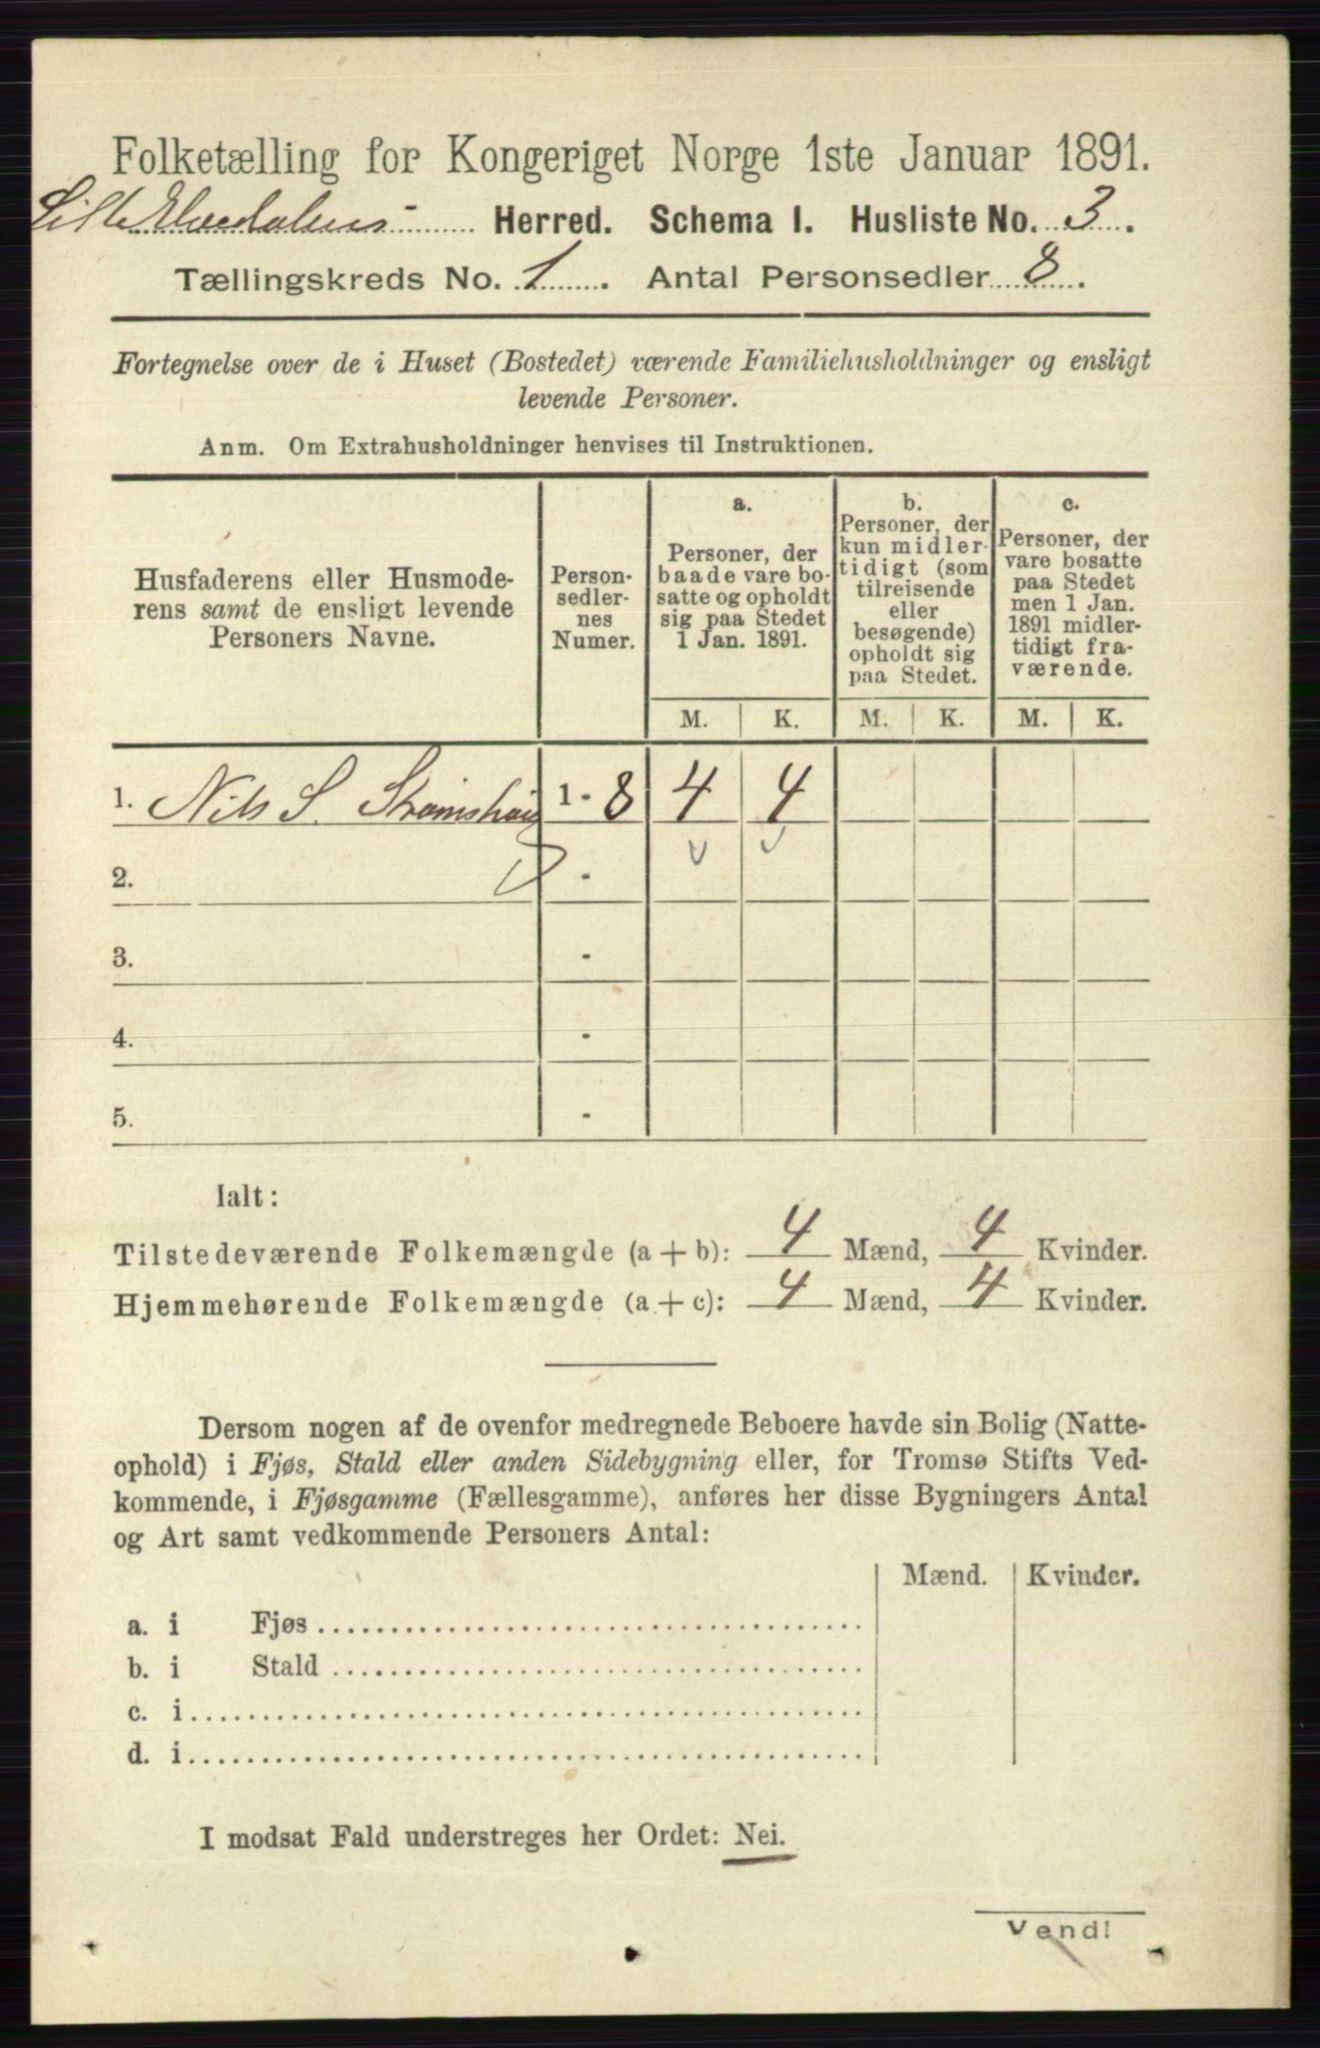 Folketælling for Kongeriget Norge 1ste Januar 1891.
Lille Elvedalens Herred. Schema I. Husliste No. 3.
Tællingskreds No. 1. Antal Personsedler 8.
Fortegnelse over de i Huset (Bostedet) værende Familiehusholdninger og ensligt
levende Personer.
Anm. Om Extrahusholdninger henvises til Instruktionen.
Husfaderens eller Husmode-
rens samt de ensligt levende
Personers Navne.
Person-
sedler-
nes
Numer.
a.
Personer, der
baade vare bo-
satte og opholdt
sig paa Stedet
1 Jan. 1891.
b.
Personer, der
kun midler-
tidigt (som
tilreisende
eller
besøgende)
opholdt sig
paa Stedet.
c.
Personer, der
vare bosatte
paa Stedet
men 1 Jan.
1891 midler-
tidigt fra-
værende.
M. K. M. K. M. K.
1. Nils S. Strømshaug 1 - 8 4 4
2. -
3. -
4. -
5. -
Ialt:
Tilstedeværende Folkemængde (a + b): 4 Mænd, 4 Kvinder.
Hjemmehørende Folkemængde (a + c): 4 Mænd, 4 Kvinder.
Dersom nogen af de ovenfor medregnede Beboere havde sin Bolig (Natte-
ophold) i Fjøs, Stald eller anden Sidebygning eller, for Tromsø Stifts Ved-
kommende, i Fjøsgamme (Fællesgamme), anføres her disse Bygningers Antal
og Art samt vedkommende Personers Antal:
Mænd. Kvinder.
a. i Fjøs
b. i Stald
c. i
d. i
I modsat Fald understreges her Ordet: Nei.
Vend!